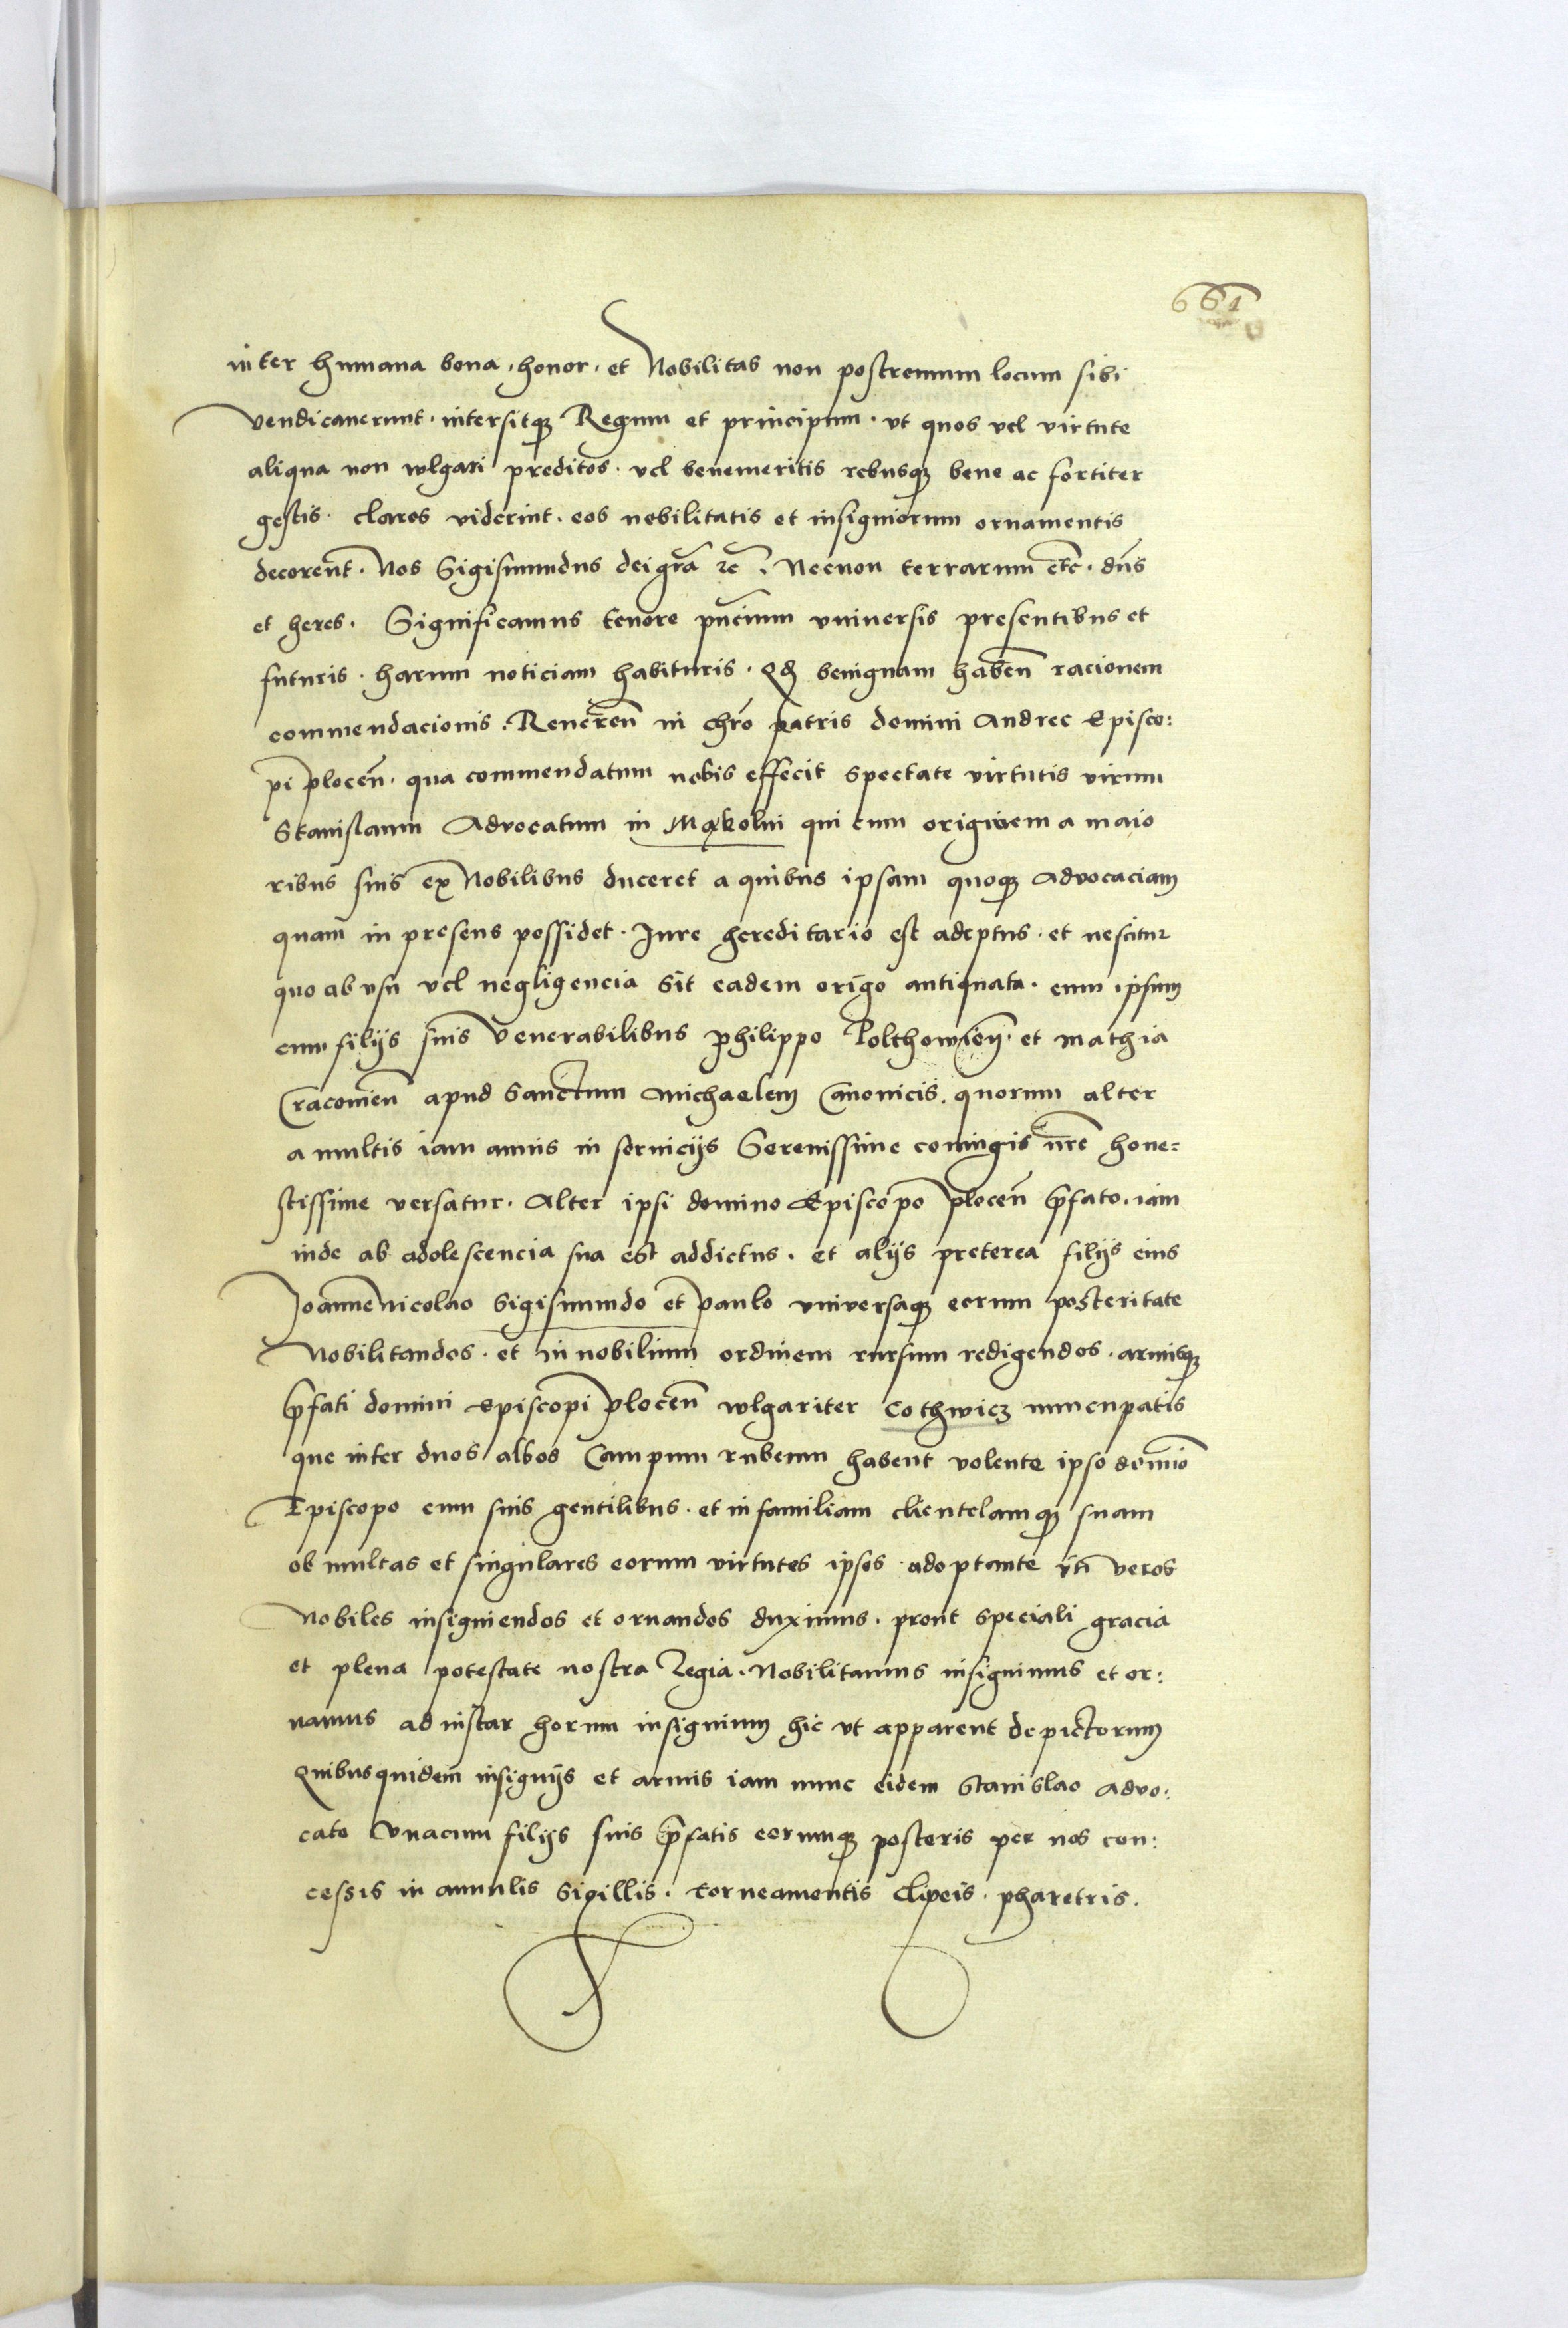 661
inter humana bona, honor, et Nobilitas non postremum locum sibi
vendicaverunt. intersitq3 Regum et principum. ut quos vel virtute
aliqua non wlgari preditos. vel benemeritis rebusq3 bene ac fortiter
gestis. claros viderint. eos nobilitatis et insigniorum ornamentis
decorent. Nos Sigismundus dei gra̅ zc̅. Necnon terrarum etc. dn̅s
et heres. Significamus tenore pn̅cium universis presentibus et
futuris. harum noticiam habituris. Qd̅ benignam haben̅ racionem
commendacionis. Reveren̅ in chr̅o patris domini Andree Episco:
pi plocen̅. qua commendatum nobis effecit spectate virtutis virum
Stanislaum Advocatum in Mąkolni qui cum originem a maio
ribus suis ex Nobilibus duceret a quibus ipsam quoq3 Advocaciam
quam in presens possidet. Jure hereditario est adeptus. et nescitur
quo ab usu vel negligencia sit eadem origo antiquata. eum ipsum
cum filijs suis Venerabilibus Philippo Polthowien̅. et Mathia
Cracovien̅ apud Sanctum Michaelem Canonicis. quorum alter
a multis iam annis in servicijs Serenissime coniugis nr̅e hone=
stissime versatur. Alter ipsi domino Episcopo plocen̅ p̅fato. iam
inde ab adolescencia sua est addictus. et alijs preterea filijs eius
Joanne Nicolao Sigismundo et Paulo universaq3 eorum posteritate
Nobilitandos. et in nobilium ordinem rursum redigendos. armisq3
p̅fati domini Episcopi plocen̅ wlgariter Cothwicz nuncupatis
que inter duos albos Campum rubeum habent volente ipso domi̅o
Episcopo cum suis gentilibus. et in familiam clientelamq3 suam
ob multas et singulares eorum virtutes ipsos adoptante uti veros
Nobiles insigniendos et ornandos duximus. prout speciali gracia
et plena potestate nostra Regia. Nobilitamus insignimus et or:
namus ad instar horum insignium hic ut apparent depictorum
Quibusquidem insignijs et armis iam nunc eidem Stanislao Advo:
cato Unacum filijs suis p̅fatis eorumq3 posteris per nos con:
cessis in annulis Sigillis. torneamentis Clipeis. pharetris.